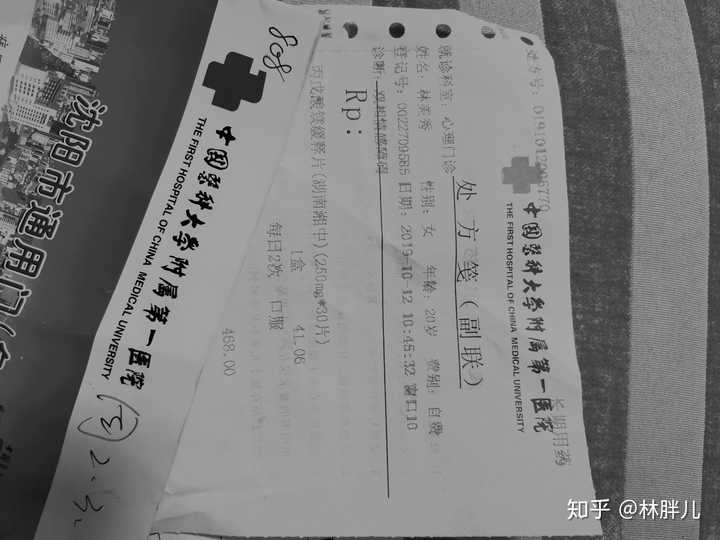 处方号: 019101200677
长期用药
中国医科大学附属第一医院
THE FIRST HOSPITAL OF CHINA MEDICAL UNIVERSITY
处方笺（副联）
就诊科室: 心理门诊
姓名: 林美秀 性别: 女 年龄: 20岁 费别: 自费
登记号: 0022709585 日期: 2019-10-12 10:45:32 窗口10
诊断: 双相情感障碍
Rp:
丙戊酸镁缓释片(湖南湘中)(250mg*30片)
1盒 41.06
每日2次 口服
468.00
808
中国医科大学附属第一医院
THE FIRST HOSPITAL OF CHINA MEDICAL UNIVERSITY
沈阳市通用门
知乎 @林胖儿